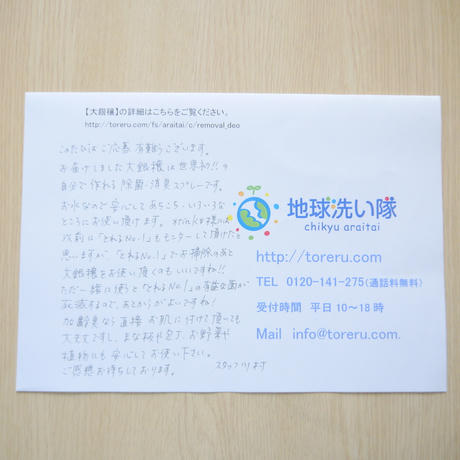 【大銀穣】の詳細はこちらをご覧ください。
http://toreru.com/fs/araitai/c/removal_deo
このたびは ご応募 有難うございます。
お届けしました 大銀穣は 世界初!! の
自分で作れる 除菌・消臭スプレーです。
お水なので 安心して あちこち いろいろな
ところに お使い頂けます。
以前に「とれるNo.1」もモニターして頂けたと
思いますが、「とれるNo.1」でお掃除のあと
大銀穣を お使い頂くのもいいですね!!
ただ一緒に使うと「とれるNo.1」の有益な菌が
死滅するので、あとからがよいですね!
加齢臭なら 直接 お肌に付けて頂いても
大丈夫ですし、まな板や包丁、お野菜や
植物にも 安心して お使い下さい。
ご感想お待ちしております。
スタッフ 村
地球洗い隊
chikyu araitai
http://toreru.com
TEL 0120-141-275(通話料無料)
受付時間 平日10~18時
Mail info@toreru.com